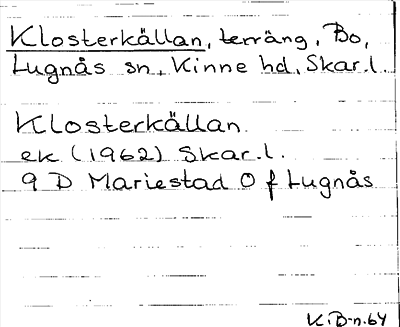 Klosterkällan, terräng, Bo,
Lugnås sn, Kinne hd, Skar.l.
Klosterkällan
ek (1962) Skar.l.
9 D Mariestad O f Lugnås
K.B-n.64